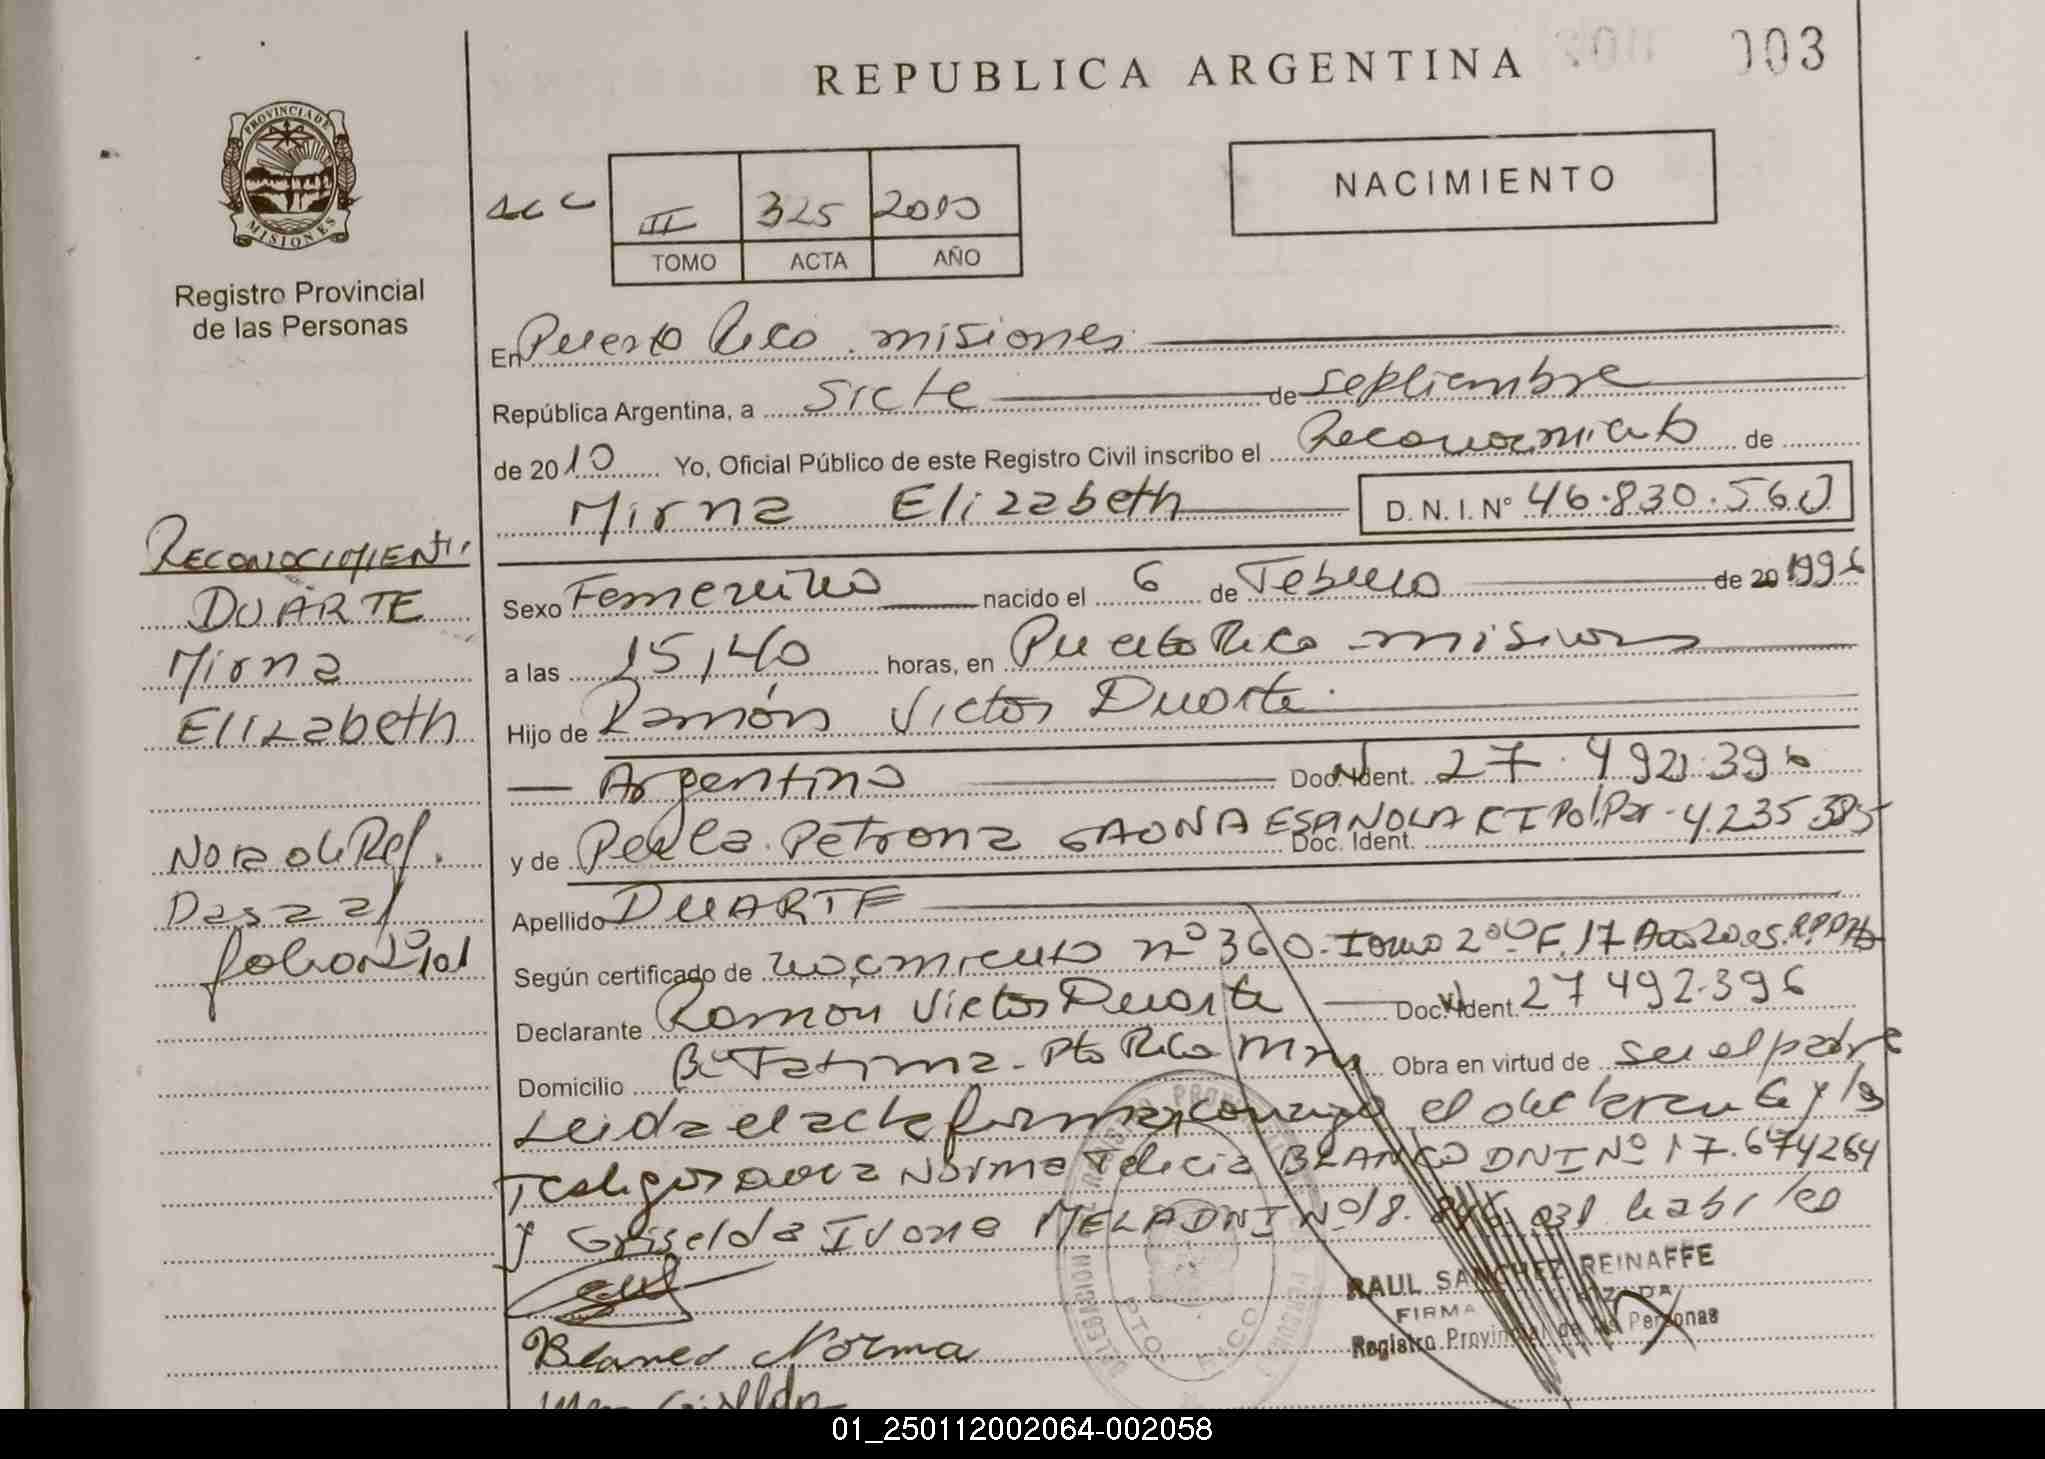 REPUBLICA ARGENTINA
003
PROVINCIA DE
MISIONES
Registro Provincial
de las Personas
NACIMIENTO
II 325 2010
TOMO ACTA AÑO
En Puerto Rico. misiones
República Argentina, a siete de septiembre
de 2010 Yo, Oficial Público de este Registro Civil inscribo el Reconocimiento de
Mirna Elizabeth D. N. I. N° 46.830.560
RECONOCIMIENTO
DUARTE
Mirna
Elizabeth
Nora de Ref.
Pasa al
folio Nº 101
Sexo Femenino nacido el 6 de Febrero de 20 1996
a las 15,40 horas, en Puerto Rico - misiones
Hijo de Ramón Victor Duarte.
Argentino Doc. Ident. 27.492.396
y de Perla Petrona GAONA ESPANOLA CI Pol. Par - 4.235.385
Doc. Ident.
Apellido DUARTE
Según certificado de nacimiento nº 360. Tomo 2º F. 17 Año 2005. R.P.P.
Declarante Ramón Victor Duarte Doc. Ident. 27 492.396
Domicilio Bº Fatima - Pto Rico Mnes Obra en virtud de ser el padre
Leida el acta firman conmigo el declarante y los
Testigos Norma Felicia BLANCO DNI Nº 17.674264
y Griselda Ivone MELA DNI Nº 18. 031 habiles
RAUL SANCHEZ REINAFFE
FIRMA
Registro Provincial de las Personas
PTO. RICO
Blanco Norma
01_250112002064-002058